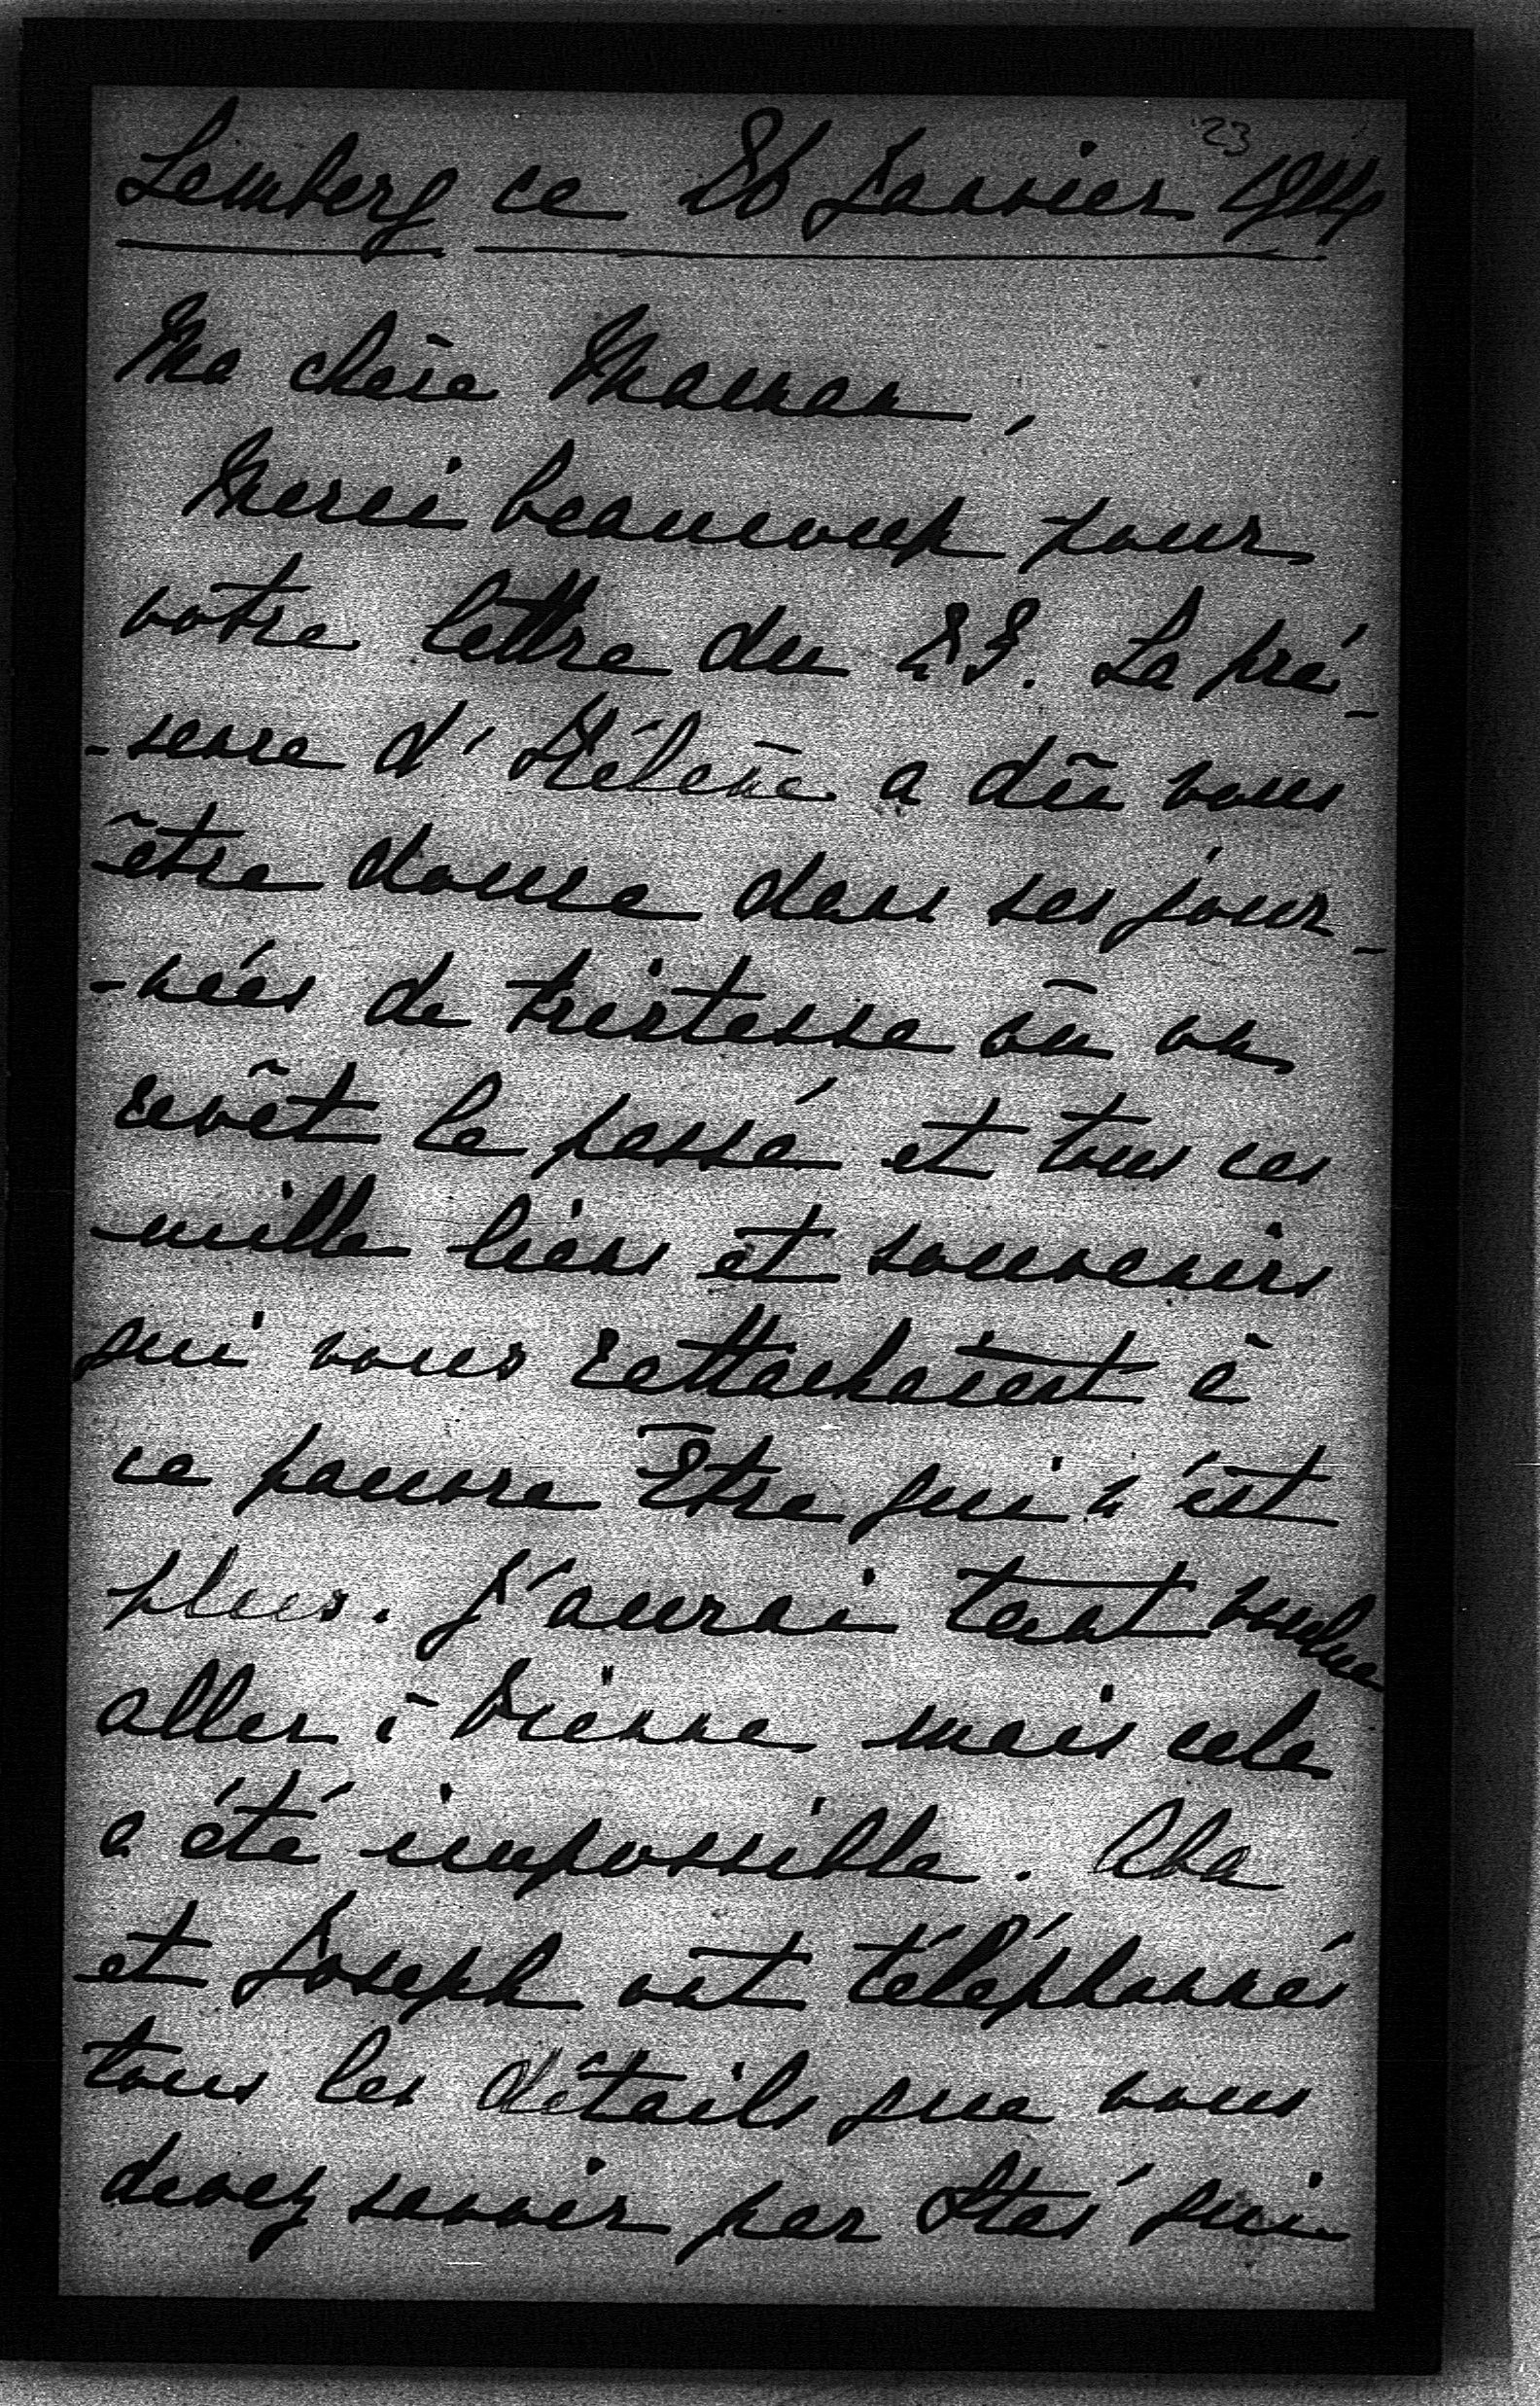 23
Lemberg ce 26 Janvier 1914
Ma chère Maman,
Merci beaucoup pour
votre lettre du 23. La pré-
-sence d'Hélène a dû vous
être douce dans ses jour-
-nées de tristesse où on
revêt le passé et tous ces
mille liens et souvenirs
qui vous rattachaient à
ce pauvre Être qui n'est
plus. J'aurai tant voulue
aller à Vienne mais cela
a été impossible.
et Joseph ont téléphonnés
tous les détails que vous
devez savoir par Stas qui